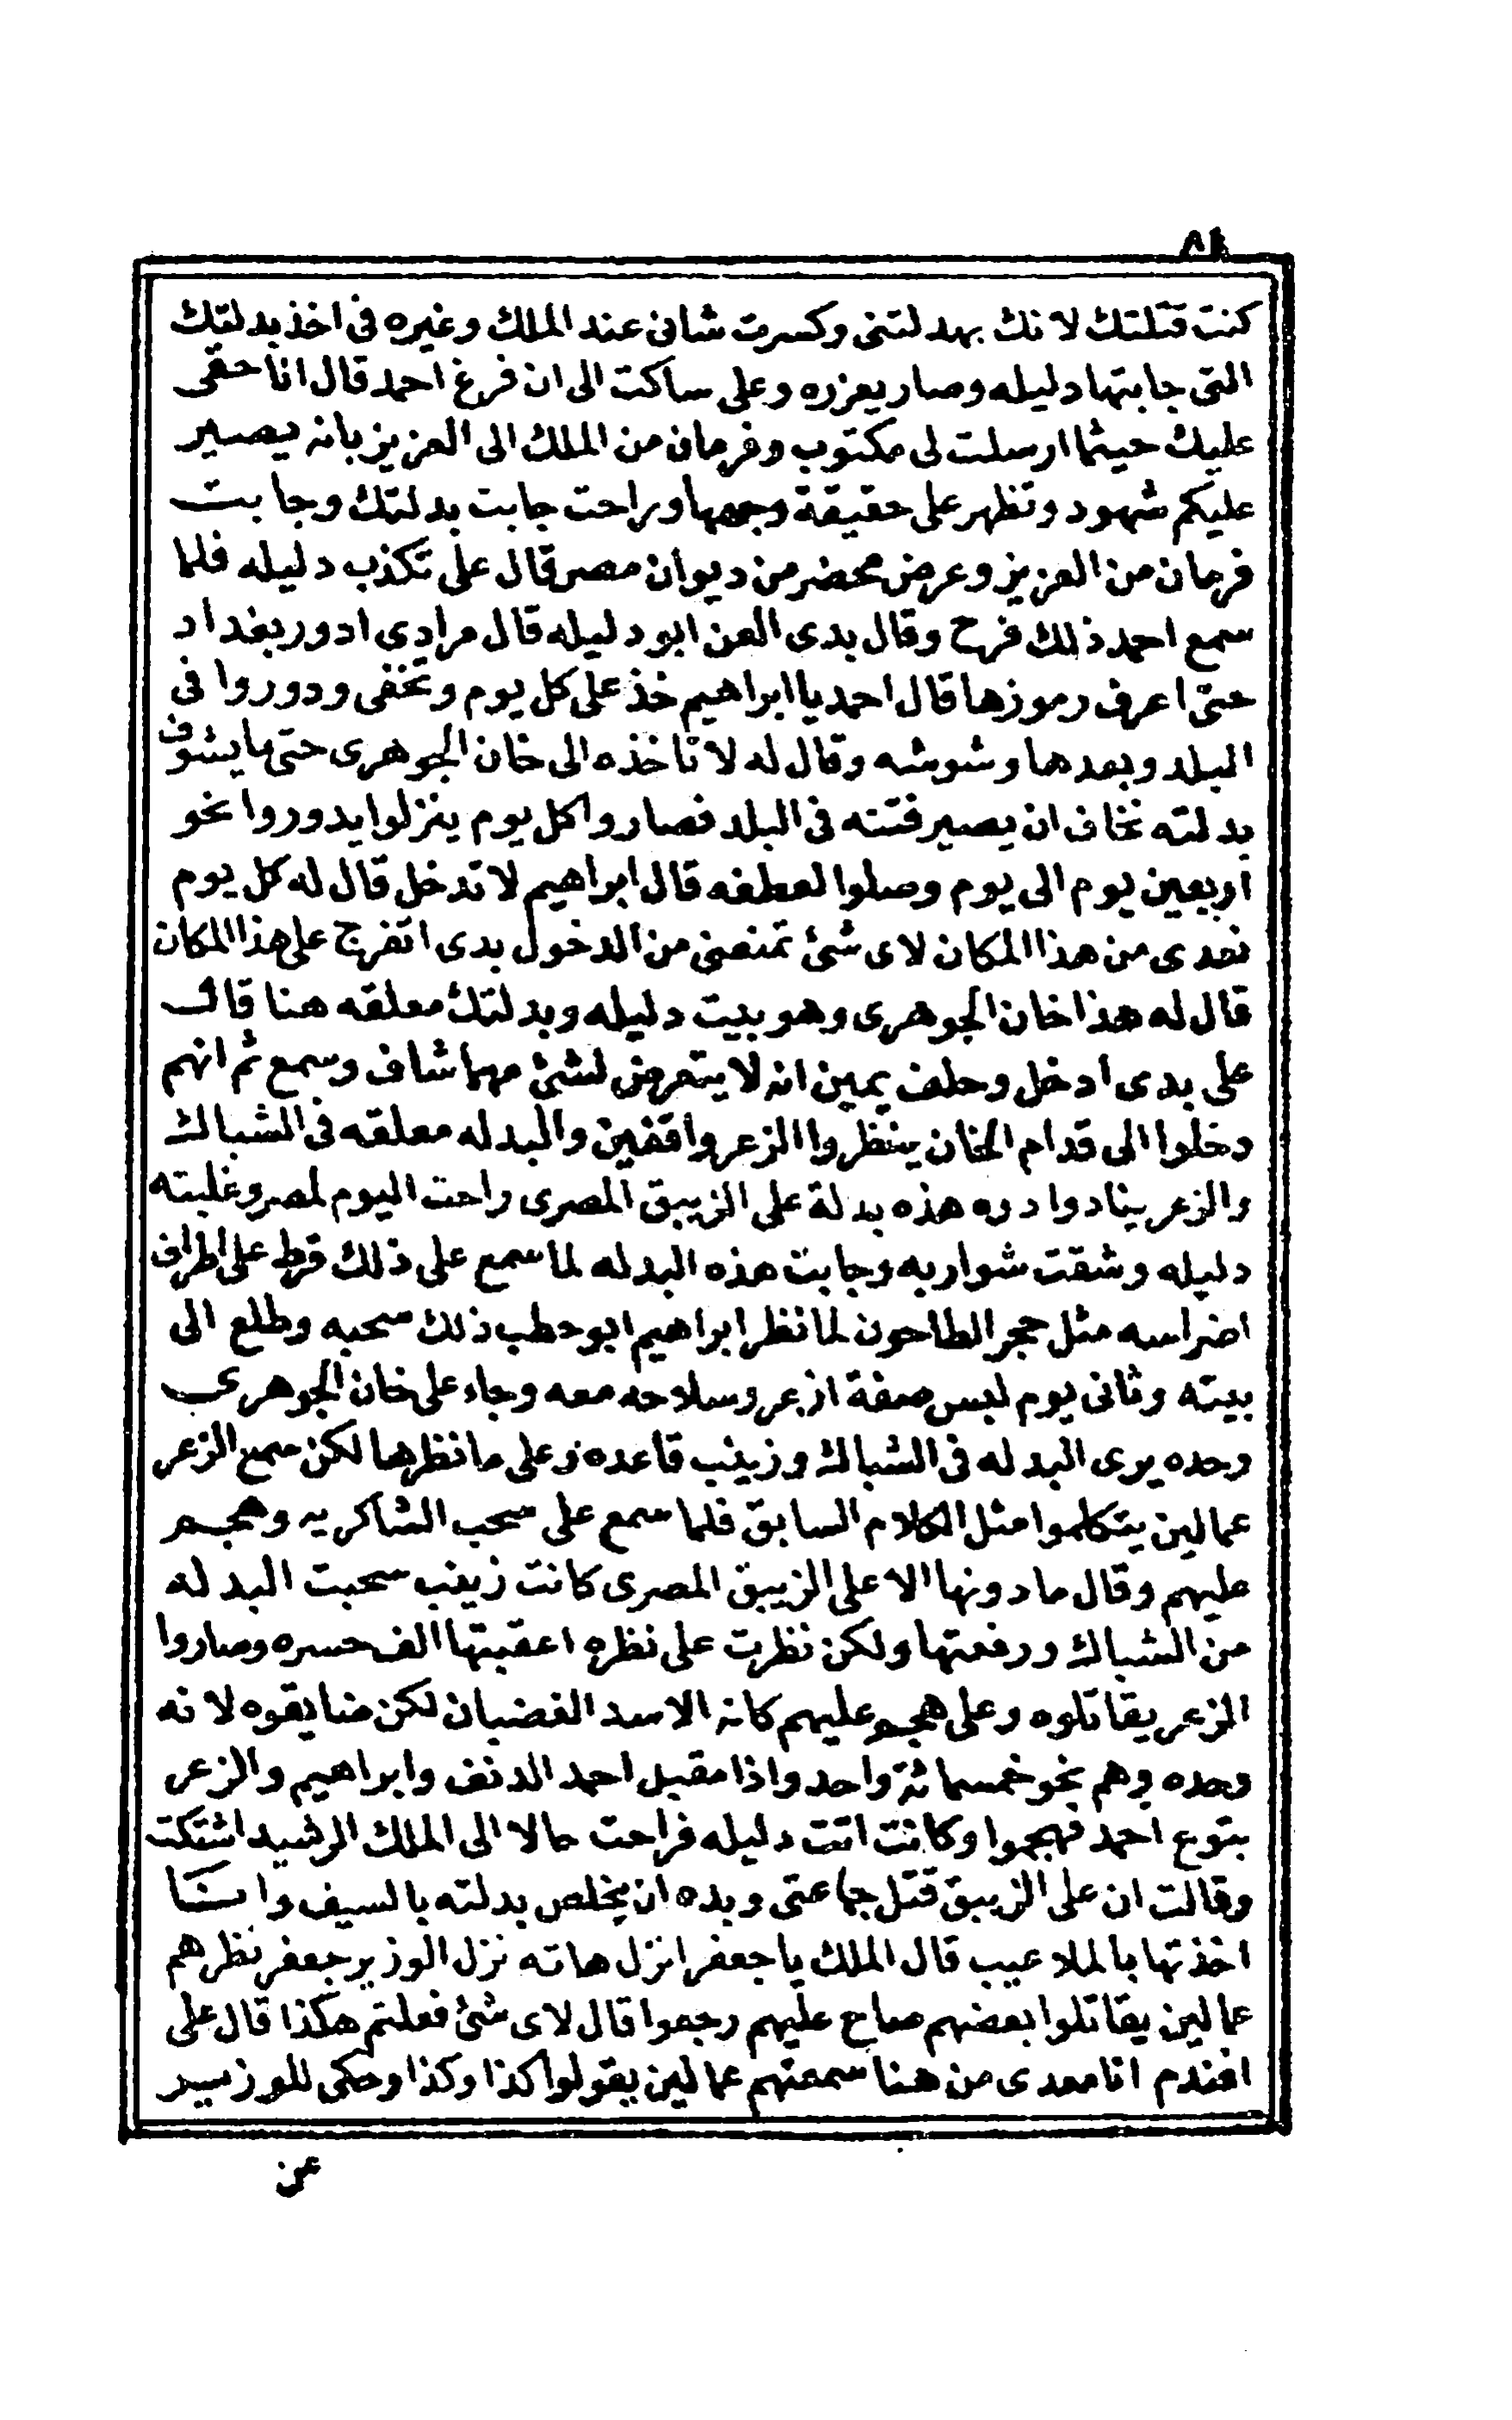 ٨٤
كنت قتلتك لانك بهدلتنى وكسرت شانى عند الملك وغيره فى اخذ بدلتك
التى جابتها دليله وصار يعزره وعلى ساكت الى ان فرغ احمد قال انا حقى
عليك حيثما ارسلت لى مكتوب وفرمان من الملك الى العزيز بانه يصير
عليكم شهود وتظهر على حقيقة وجهها وراحت جابت بدلتك وجابت
فرمان من العزيز وعرض محضر من ديوان مصر قال على تكذب دليله فلما
سمع احمد ذلك فرح وقال بدى العن ابو دليله قال مرادى ادور بغداد
حتى اعرف رموزها قال احمد يا ابراهيم خذ على كل يوم وتخفى ودوروا فى
البلد وبعدها وشوشه وقال له لا تاخذه الى خان الجوهرى حتى ما يشوف
بدلته نخاف ان يصير فتنه فى البلد فصاروا كل يوم ينزلوا يدوروا نحو
اربعين يوم الى يوم وصلوا لعطفه قال ابراهيم لا تدخل قال له كل يوم
نعدى من هذا المكان لاى شئ تمنعنى من الدخول بدى اتفرج على هذا المكان
قال له هذا خان الجوهرى وهو بيت دليله وبدلتك معلقه هنا قال
على بدى ادخل وحلف يمين انه لا يتعرض لشئ مهما شاف وسمع ثم انهم
دخلوا الى قدام الخان ينظروا الزعر واقفين والبدله معلقه فى الشباك
والزعر ينادوا دوه هذه بدلة على الزيبق المصرى راحت اليوم لمصر وغلبته
دليله وشقت شواربه وجابت هذه البدله لما سمع على ذلك قرط على اطراف
اضراسه مثل حجر الطاحون لما نظر ابراهيم ابو حطب ذلك سحبه وطلع الى
بيته وثانى يوم لبس صفة ازعر وسلاحه معه وجاء على خان الجوهرى
وحده يرى البدله فى الشباك وزينب قاعده وعلى ما نظرها لكن سمع الزعر
عمالين يتكلموا مثل الكلام السابق فلما سمع على سحب الشاكريه وهجم
عليهم وقال ما دونها الا على الزيبق المصرى كانت زينب سحبت البدله
من الشباك ورفعتها ولكن نظرت على نظره اعقبتها الف حسره وصاروا
الزعر يقاتلوه وعلى هجم عليهم كانه الاسد الغضبان لكن ضايقوه لانه
وحده وهم نحو خمسمائة واحد واذا مقبل احمد الدنف وابراهيم والزعر
بتوع احمد فهجموا وكانت اتت دليله فراحت حالا الى الملك الرشيد اشتكت
وقالت ان على الزيبق قتل جماعتى وبده ان يخلص بدلته بالسيف وانا
اخذتها بالملاعيب قال الملك يا جعفر انزل هاته نزل الوزير جعفر نظرهم
عمالين يقاتلوا بعضهم صاح عليهم رجعوا قال لاى شئ فعلتم هكذا قال على
افندم انا معدى من هنا سمعتهم عمالين يقولوا كذا وكذا وحكى للوزير
عن